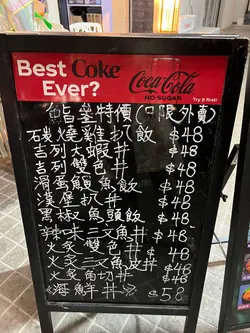 Best Coke
Ever?
Coca-Cola
NO SUGAR
Try it first!
鮨壐特價(只限外賣)
炭燒雞扒飯 $48
吉列大蝦丼 $48
吉列雙色丼 $48
滑蛋鰻魚飯 $48
漢堡扒丼 $48
黑椒魚頭飯 $48
辣味三文魚丼 $48
火炙雙色丼 $48
火炙三文魚皮丼 $48
火炙角切丼 $48
《海鮮丼》 $58